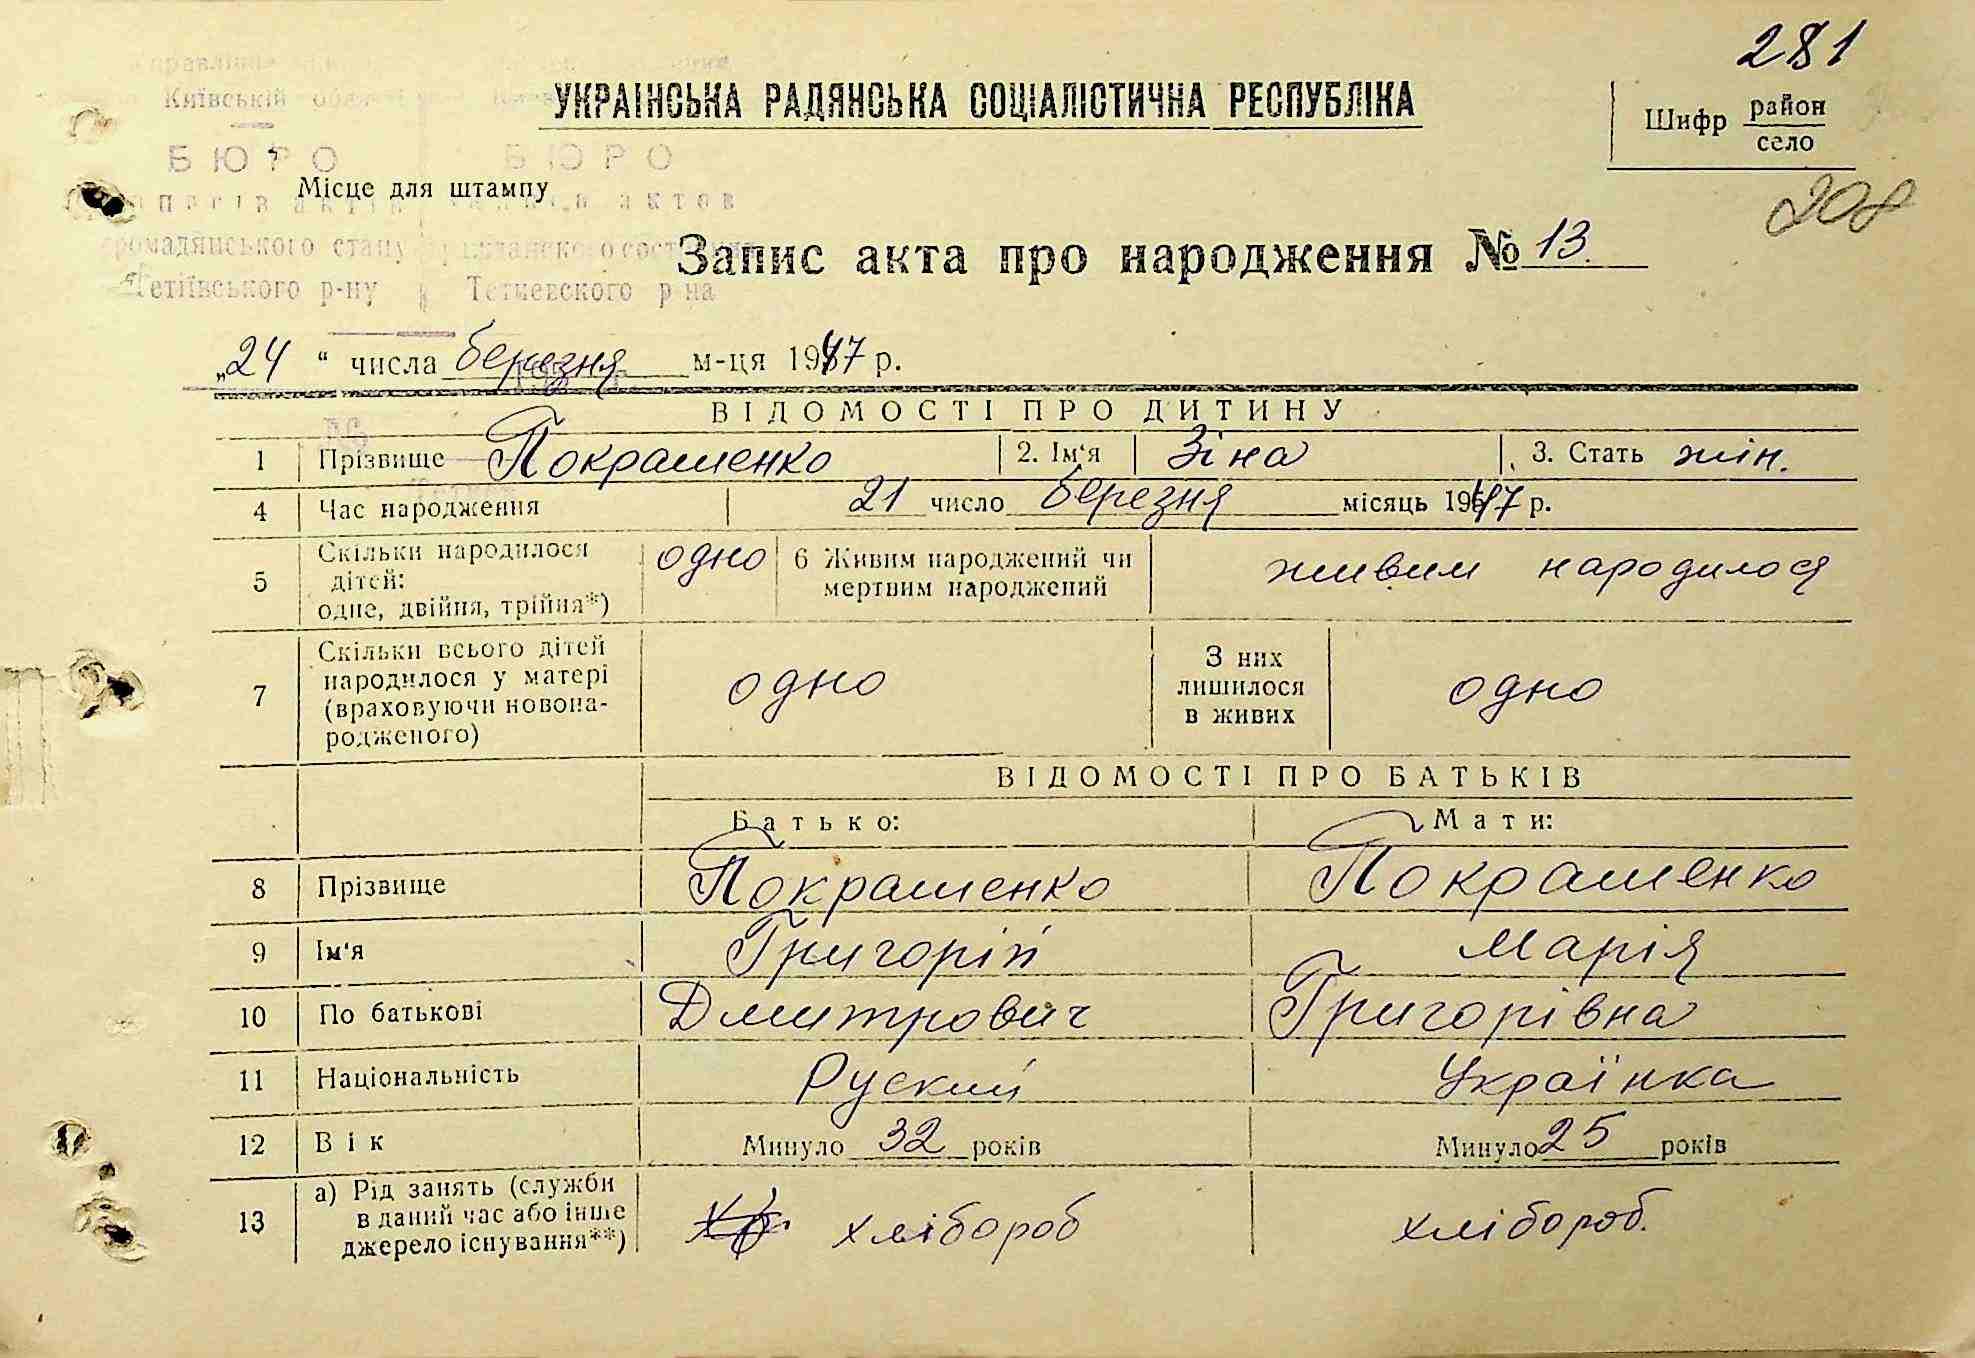 281
Київській
УКРАЇНСЬКА РАДЯНСЬКА СОЦІАЛІСТИЧНА РЕСПУБЛІКА
Шифр район
село
БЮРО БЮРО
Місце для штампу
208
громадянського стану
Запис акта про народження № 13.
Тетіївського р-ну Тетиевского р-на
„24 “ числа березня м-ця 1947 р.
ВІДОМОСТІ ПРО ДИТИНУ
1 Прізвище Покрашенко 2. Ім'я Зіна 3. Стать жін.
4 Час народження 21 число березня місяць 1947 р.
5 Скільки народилося дітей: одне, двійня, трійня*) одно 6 Живим народжений чи мертвим народжений живим народилося
7 Скільки всього дітей народилося у матері (враховуючи новона-родженого) одно З них лишилося в живих одно
ВІДОМОСТІ ПРО БАТЬКІВ
Батько: Мати:
8 Прізвище Покрашенко Покрашенко
9 Ім'я Григорій Марія
10 По батькові Дмитрович Григорівна
11 Національність Руский Українка
12 Вік Минуло 32 років Минуло 25 років
13 а) Рід занять (служби в даний час або інше джерело існування**) хлібороб хлібороб.